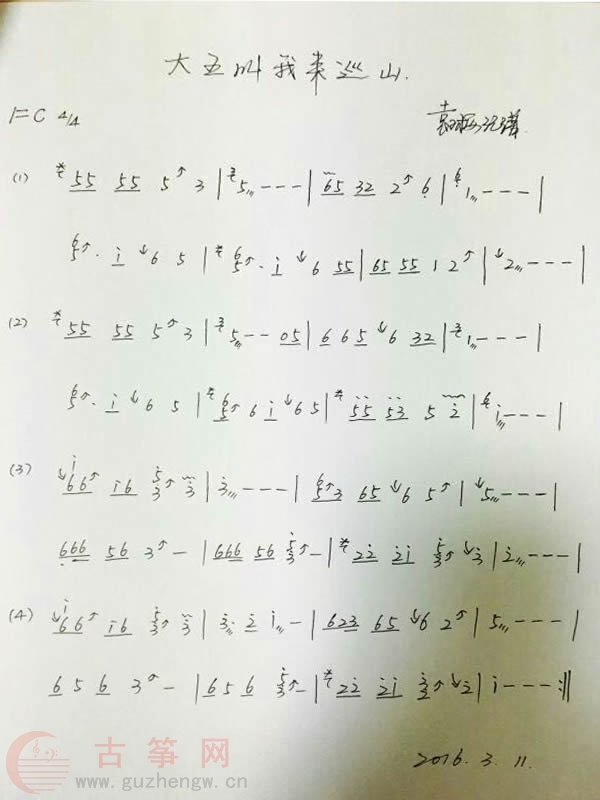 大王叫我来巡山.
1=C 4/4
(1) 55 55 5 3 | 5 - - - | 65 32 2 6 | 1 - - - |
5 · i 6 5 | 5 · i 6 55 | 65 55 1 2 | 2 - - - |
(2) 55 55 5 3 | 5 - - 05 | 6 6 5 6 32 | 1 - - - |
5 · i 6 5 | 5 6 i 6 5 | 55 53 5 2 | i - - - |
(3) 66 i6 3 3 | 3 - - - | 5 3 65 6 5 | 5 - - - |
666 56 3 - | 666 56 3 - | 22 21 3 3 | 2 - - - |
(4) 66 i6 3 3 | 3 · 2 i - | 623 65 6 2 | 5 - - - |
6 5 6 3 - | 6 5 6 3 - | 22 2i 3 2 | i - - - :||
2016. 3. 11.
古筝网
www.guzhengw.cn